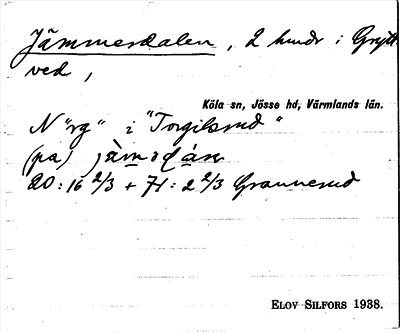 Jämmerdalen, 2 hundr i Grytt-
ved,
Köla sn, Jösse hd, Värmlands län.
N "rg" i "Torgilsrud"
(pa)
20:16 2/3 + 71:2 2/3 Grannerud
ELOV SILFORS 1938.